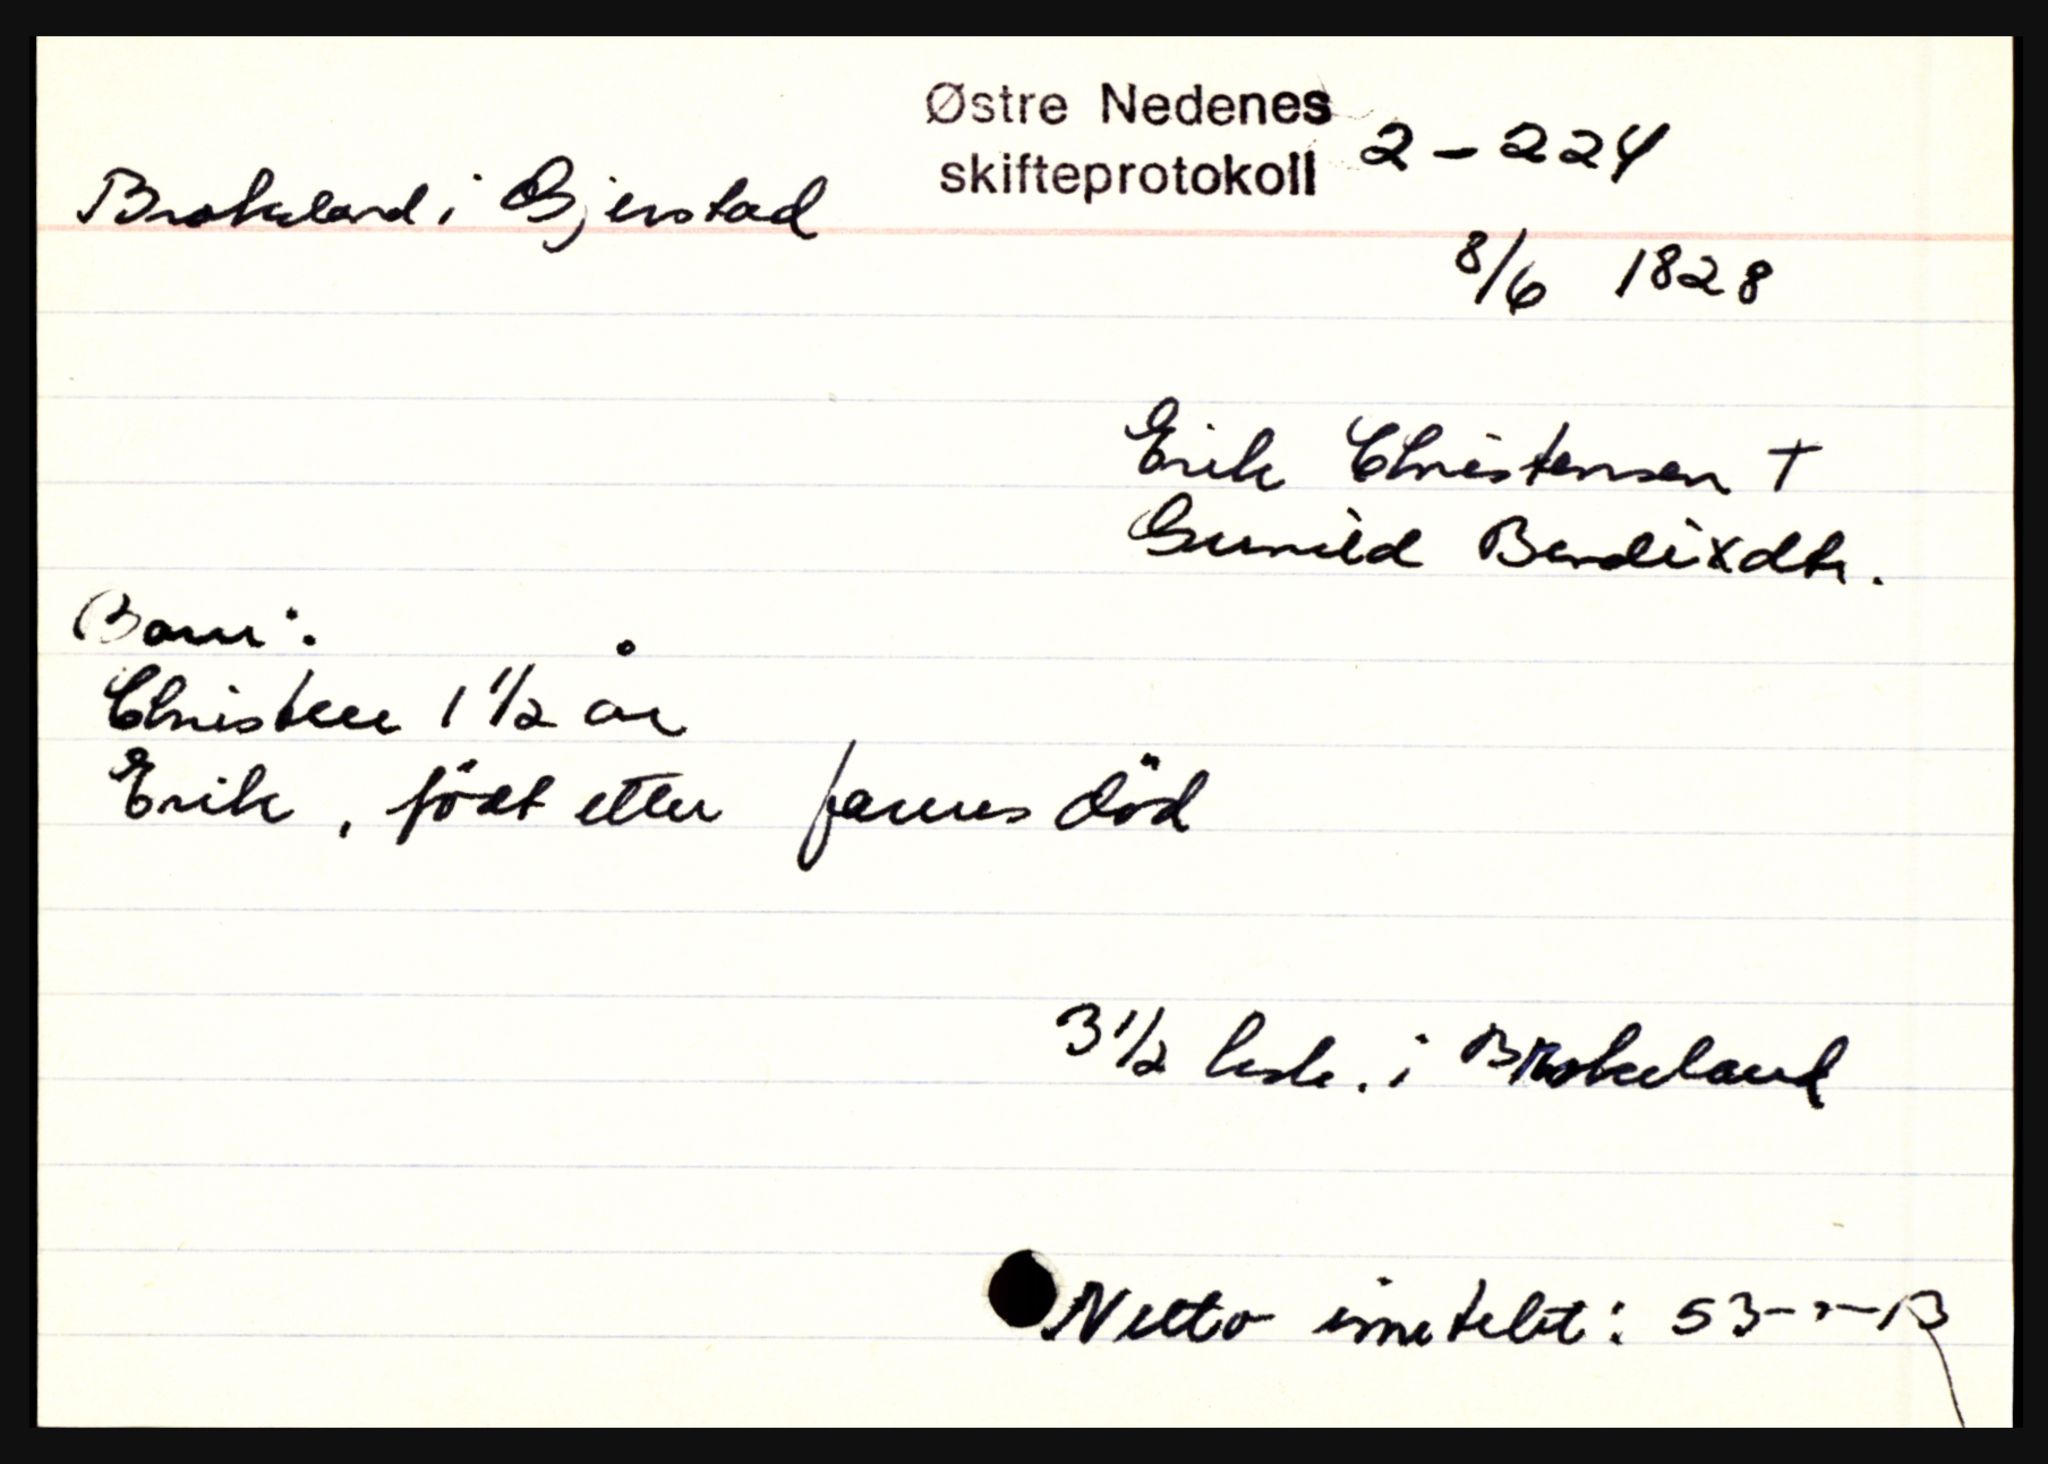 Østre Nedenes
skifteprotokoll 2-224
Brokeland i Gjerstad
8/6 1828
Erik Christensen †
Gunild Bendixdtr.
Barn:
Christen 1 1/2 år
Erik, födt etter farens död
3 1/2 lesk. i Brokeland
Netto innstebt: 53-